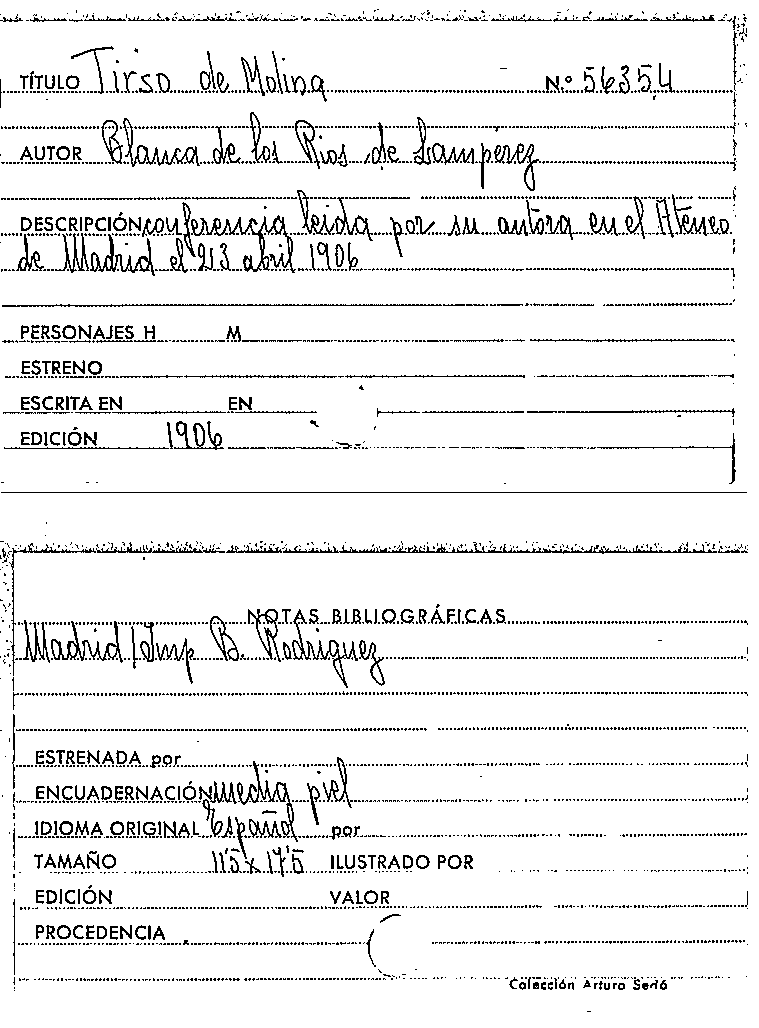 TÍTULO Tirso de Molina N.º 56354
AUTOR Blanca de los Rios de Lampérez
DESCRIPCIÓN conferencia leida por su autora en el Ateneo
de Madrid el 23 abril 1906
PERSONAJES H M
ESTRENO
ESCRITA EN EN
EDICIÓN 1906
NOTAS BIBLIOGRÁFICAS
Madrid/Imp B. Rodriguez
ESTRENADA por
ENCUADERNACIÓN media piel
IDIOMA ORIGINAL Español por
TAMAÑO 11'5 x 17'5 ILUSTRADO POR
EDICIÓN VALOR
PROCEDENCIA
Colección Arturo Sedó